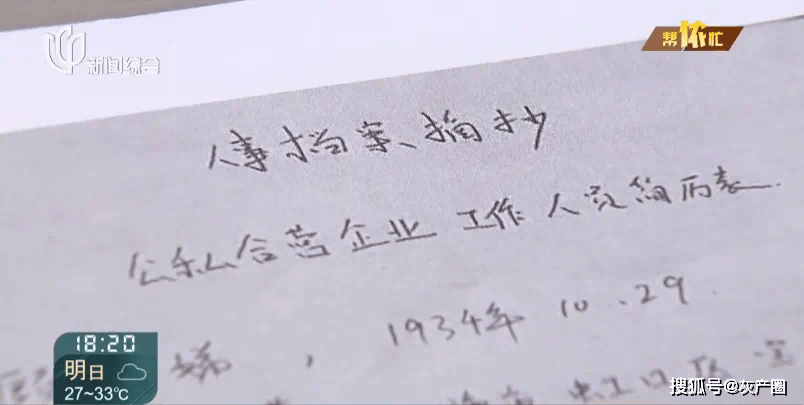 新闻综合
帮侬忙
人事档案、摘抄
公私合营企业 工作人员简历表
1934年 10.29
18:20
明日
27~33℃
虹口区
搜狐号@灰产圈